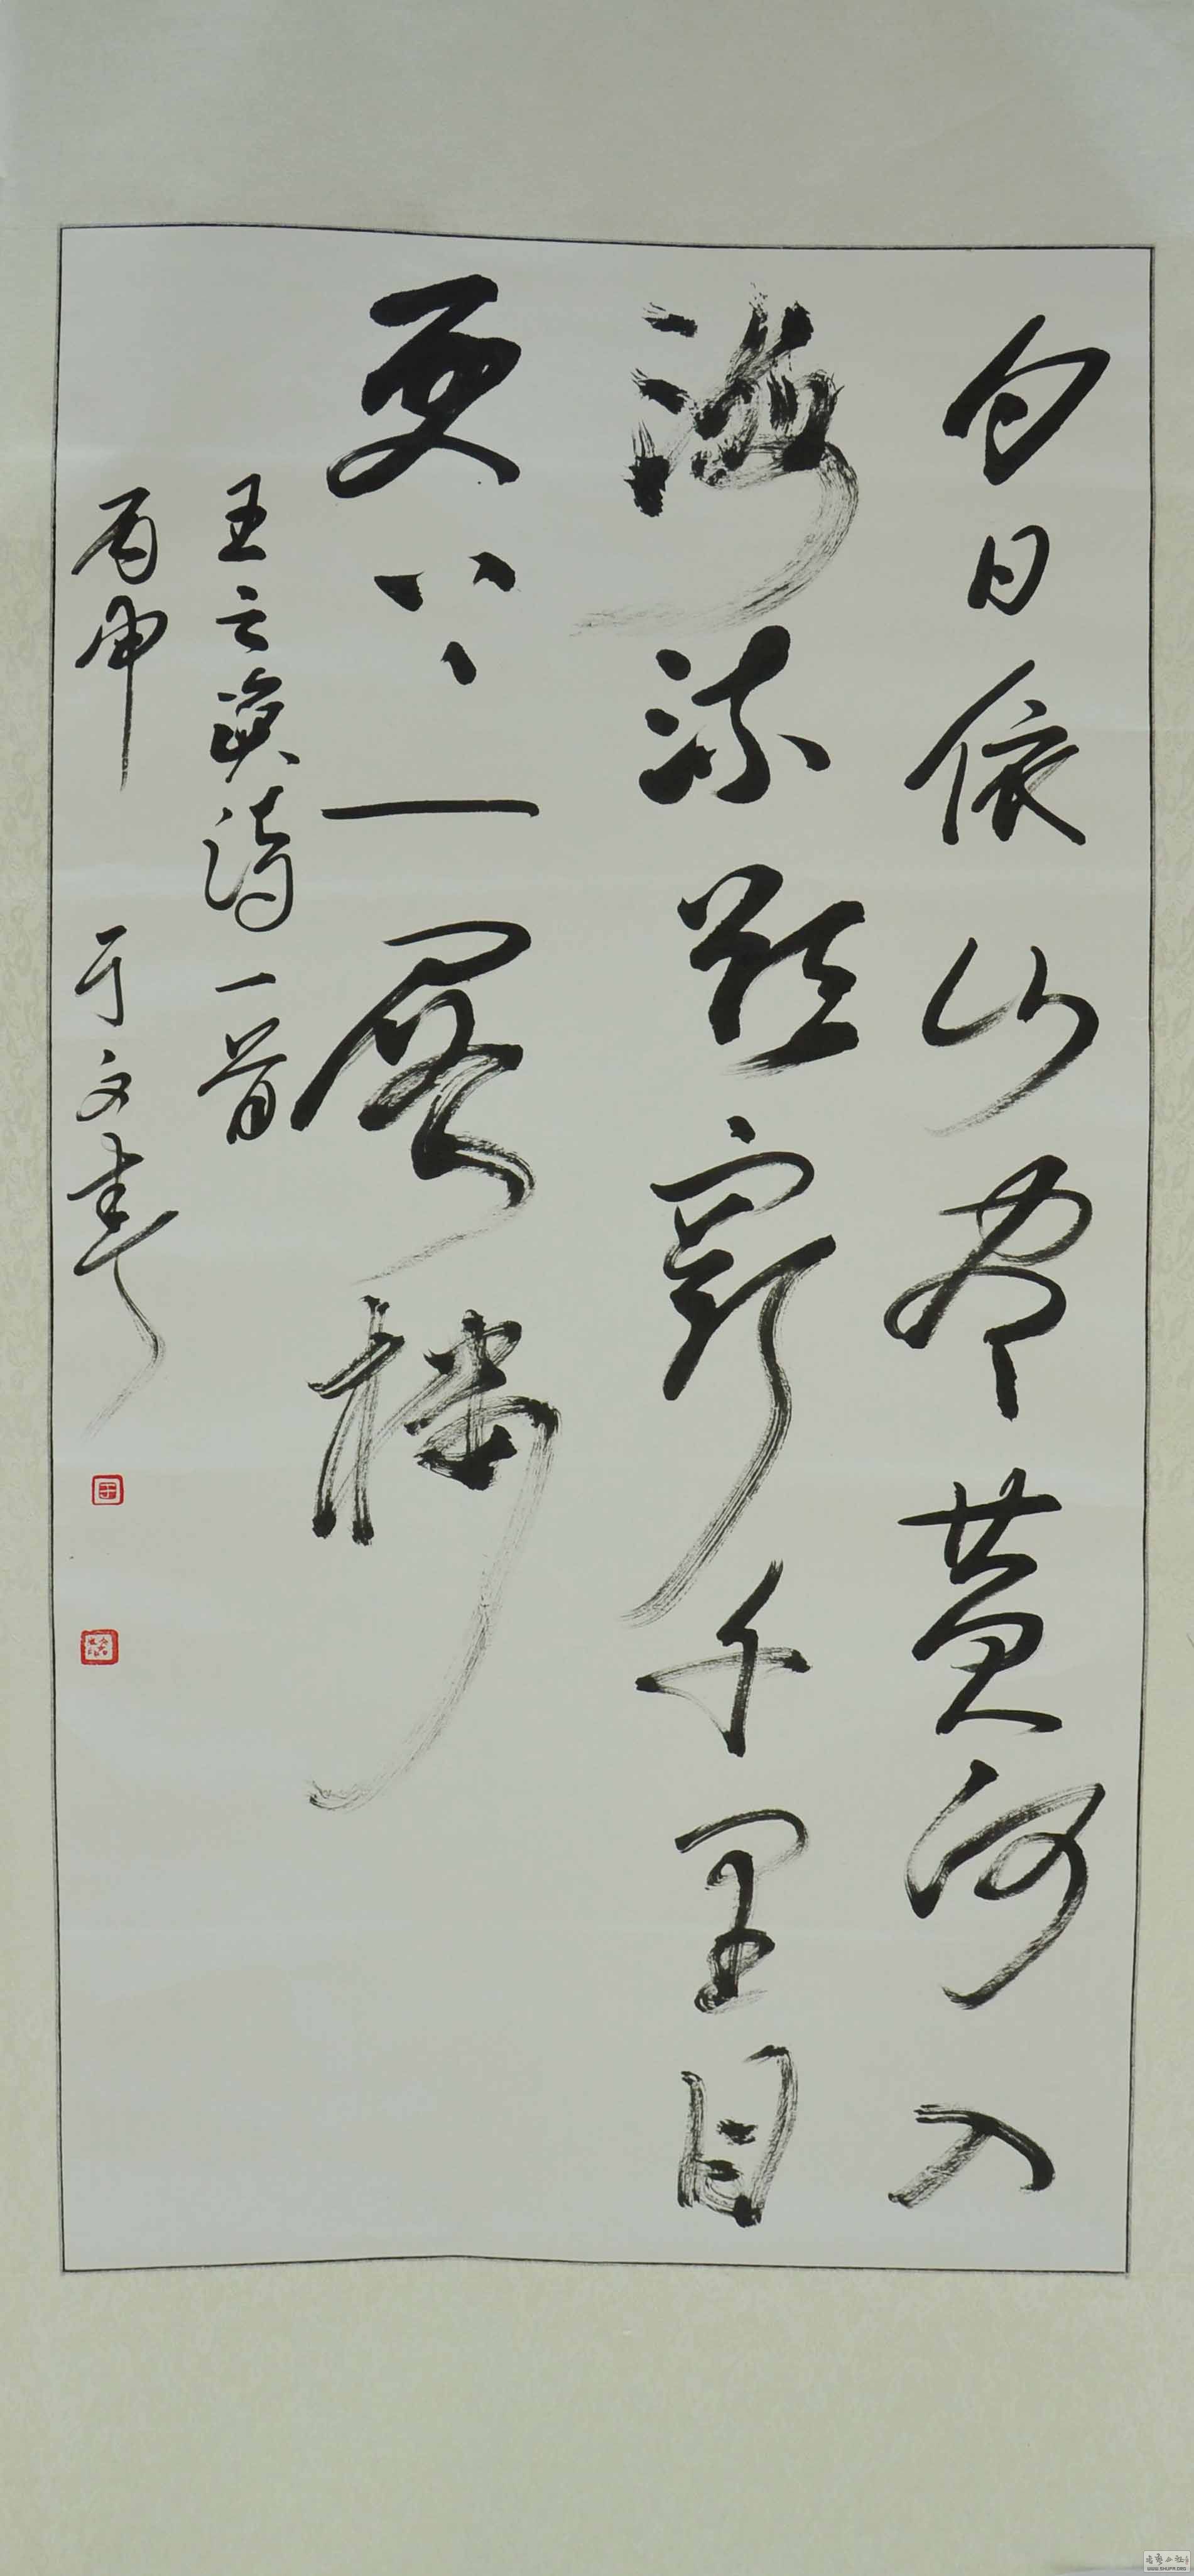 白日依山尽黄河入
海流欲穷千里目
更上一层楼
王之涣诗一首
丙申 于文书